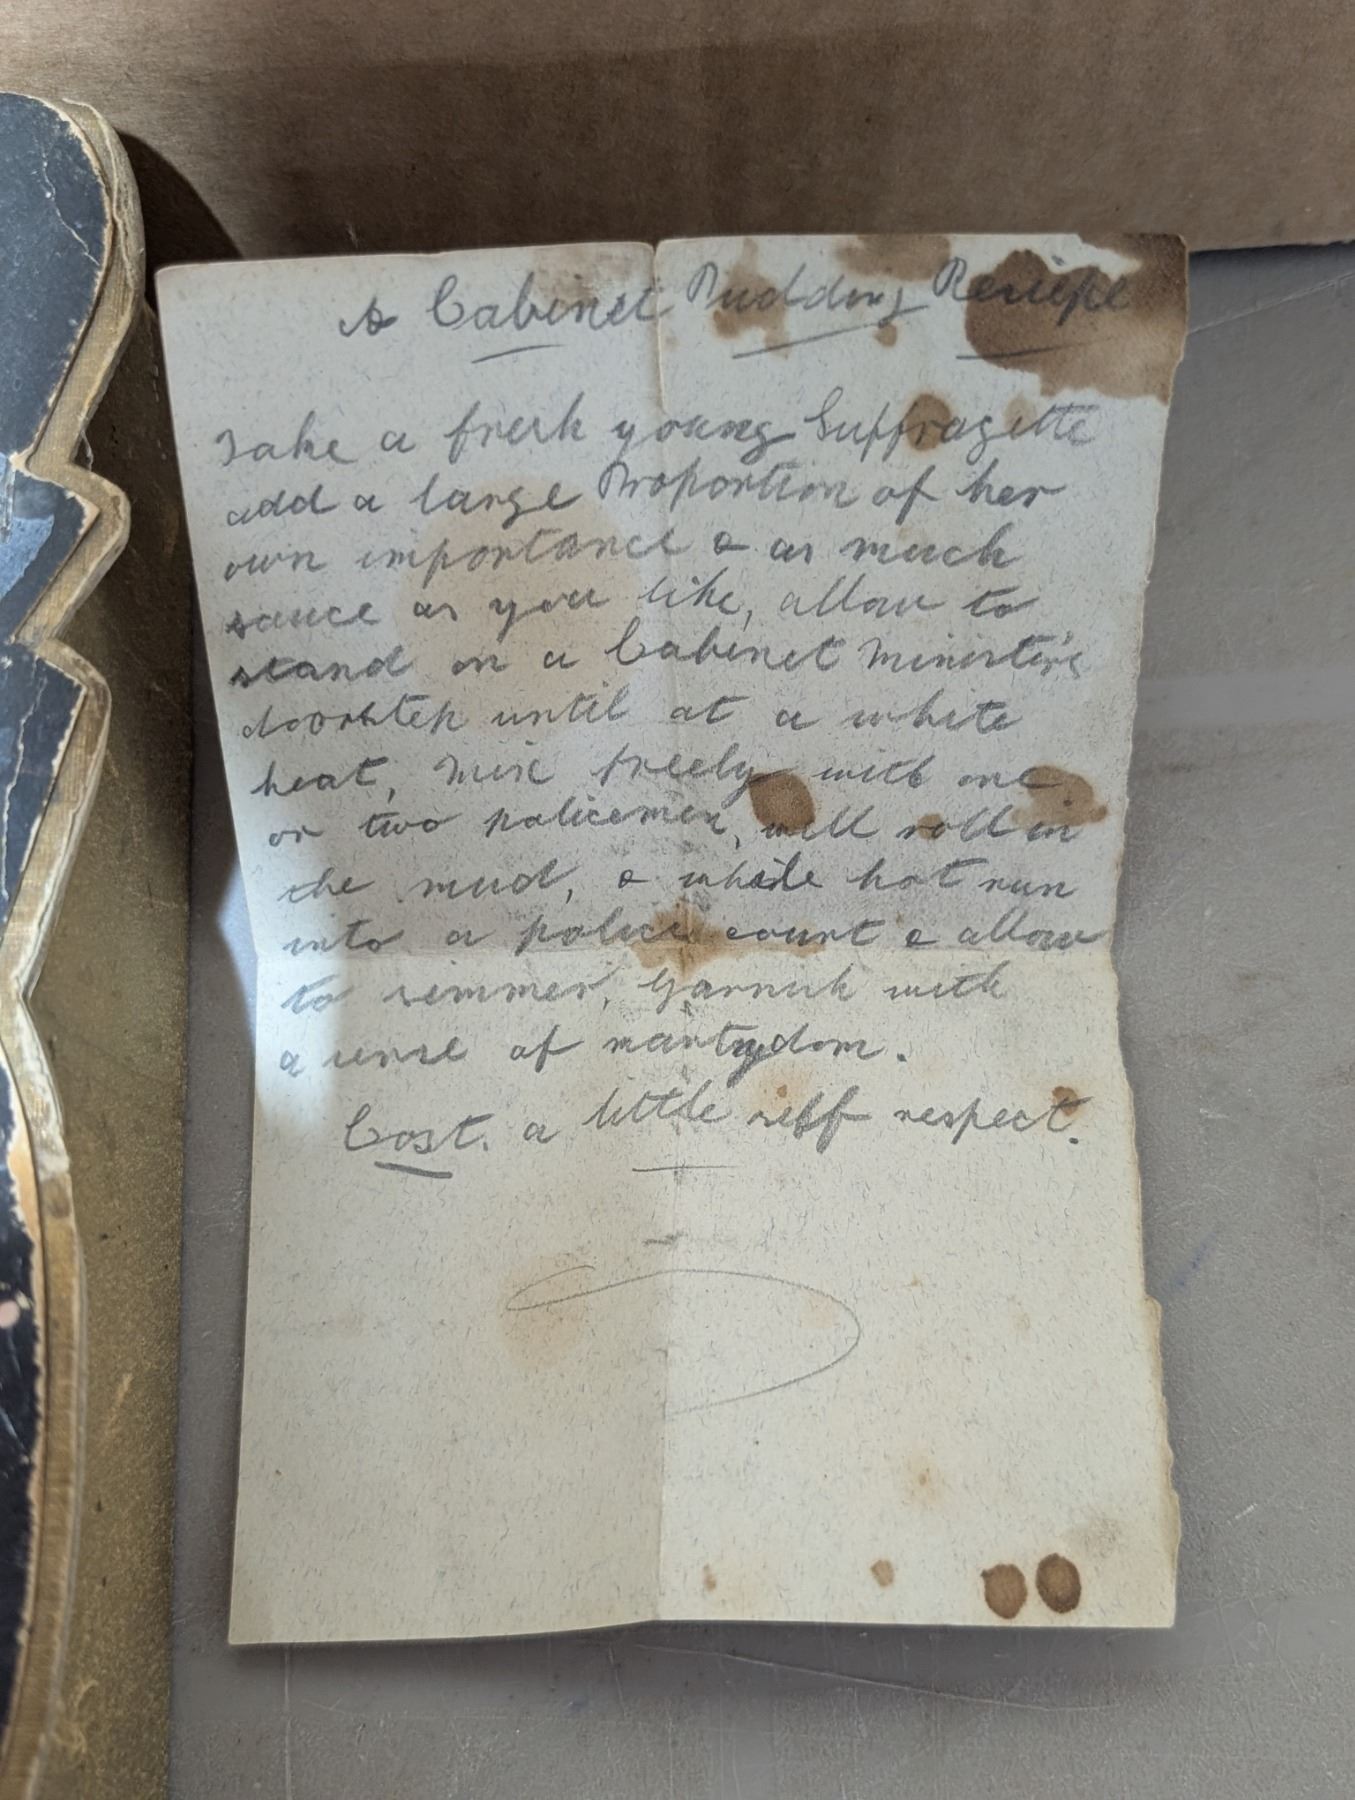 A Cabinet Pudding Reciepe
Take a fresh young Suffragette
add a large Proportion of her
own importance & as much
sauce as you like, allow to
stand on a Cabinet Minister's
doorstep until at a white
heat, Mix freely with one
or two policemen, well roll in
the mud, & while hot run
into a police court & allow
to simmer, Garnish with
a sense of martydom.
Cost. a little self respect.